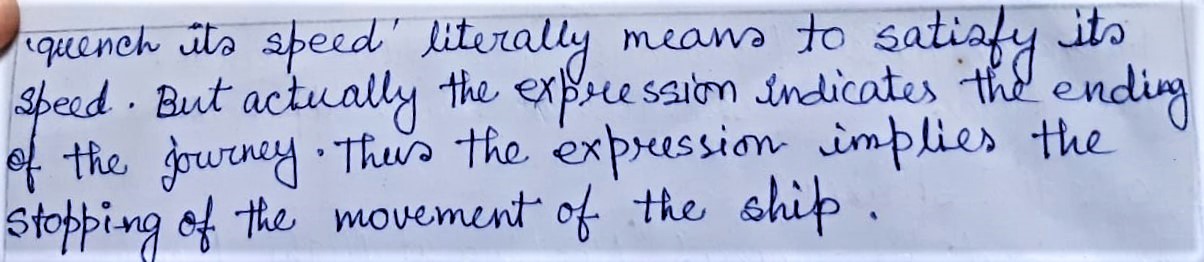 'quench its speed' literally means to satisfy its
speed. But actually the expression indicates the ending
of the journey. Thus the expression implies the
stopping of the movement of the ship.